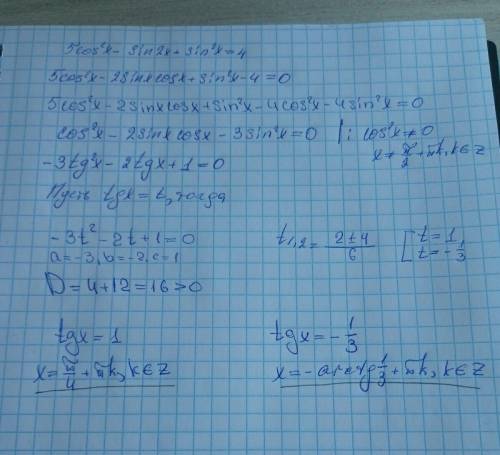 5cos²x - sin2x + sin²x = 4
5cos²x - 2sinxcosx + sin²x - 4 = 0
5cos²x - 2sinxcosx + sin²x - 4cos²x - 4sin²x = 0
cos²x - 2sinxcosx - 3sin²x = 0 /: cos²x ≠ 0
x ≠ π/2 + πk, k ∈ Z
-3tg²x - 2tgx + 1 = 0
Пусть tgx = t, тогда
-3t² - 2t + 1 = 0
a = -3, b = -2, c = 1
D = 4 + 12 = 16 > 0
t1,2 = (2 ± 4)/6 [ t = 1, t = -1/3
tgx = 1
x = π/4 + πk, k ∈ Z
tgx = -1/3
x = -arctg 1/3 + πk, k ∈ Z